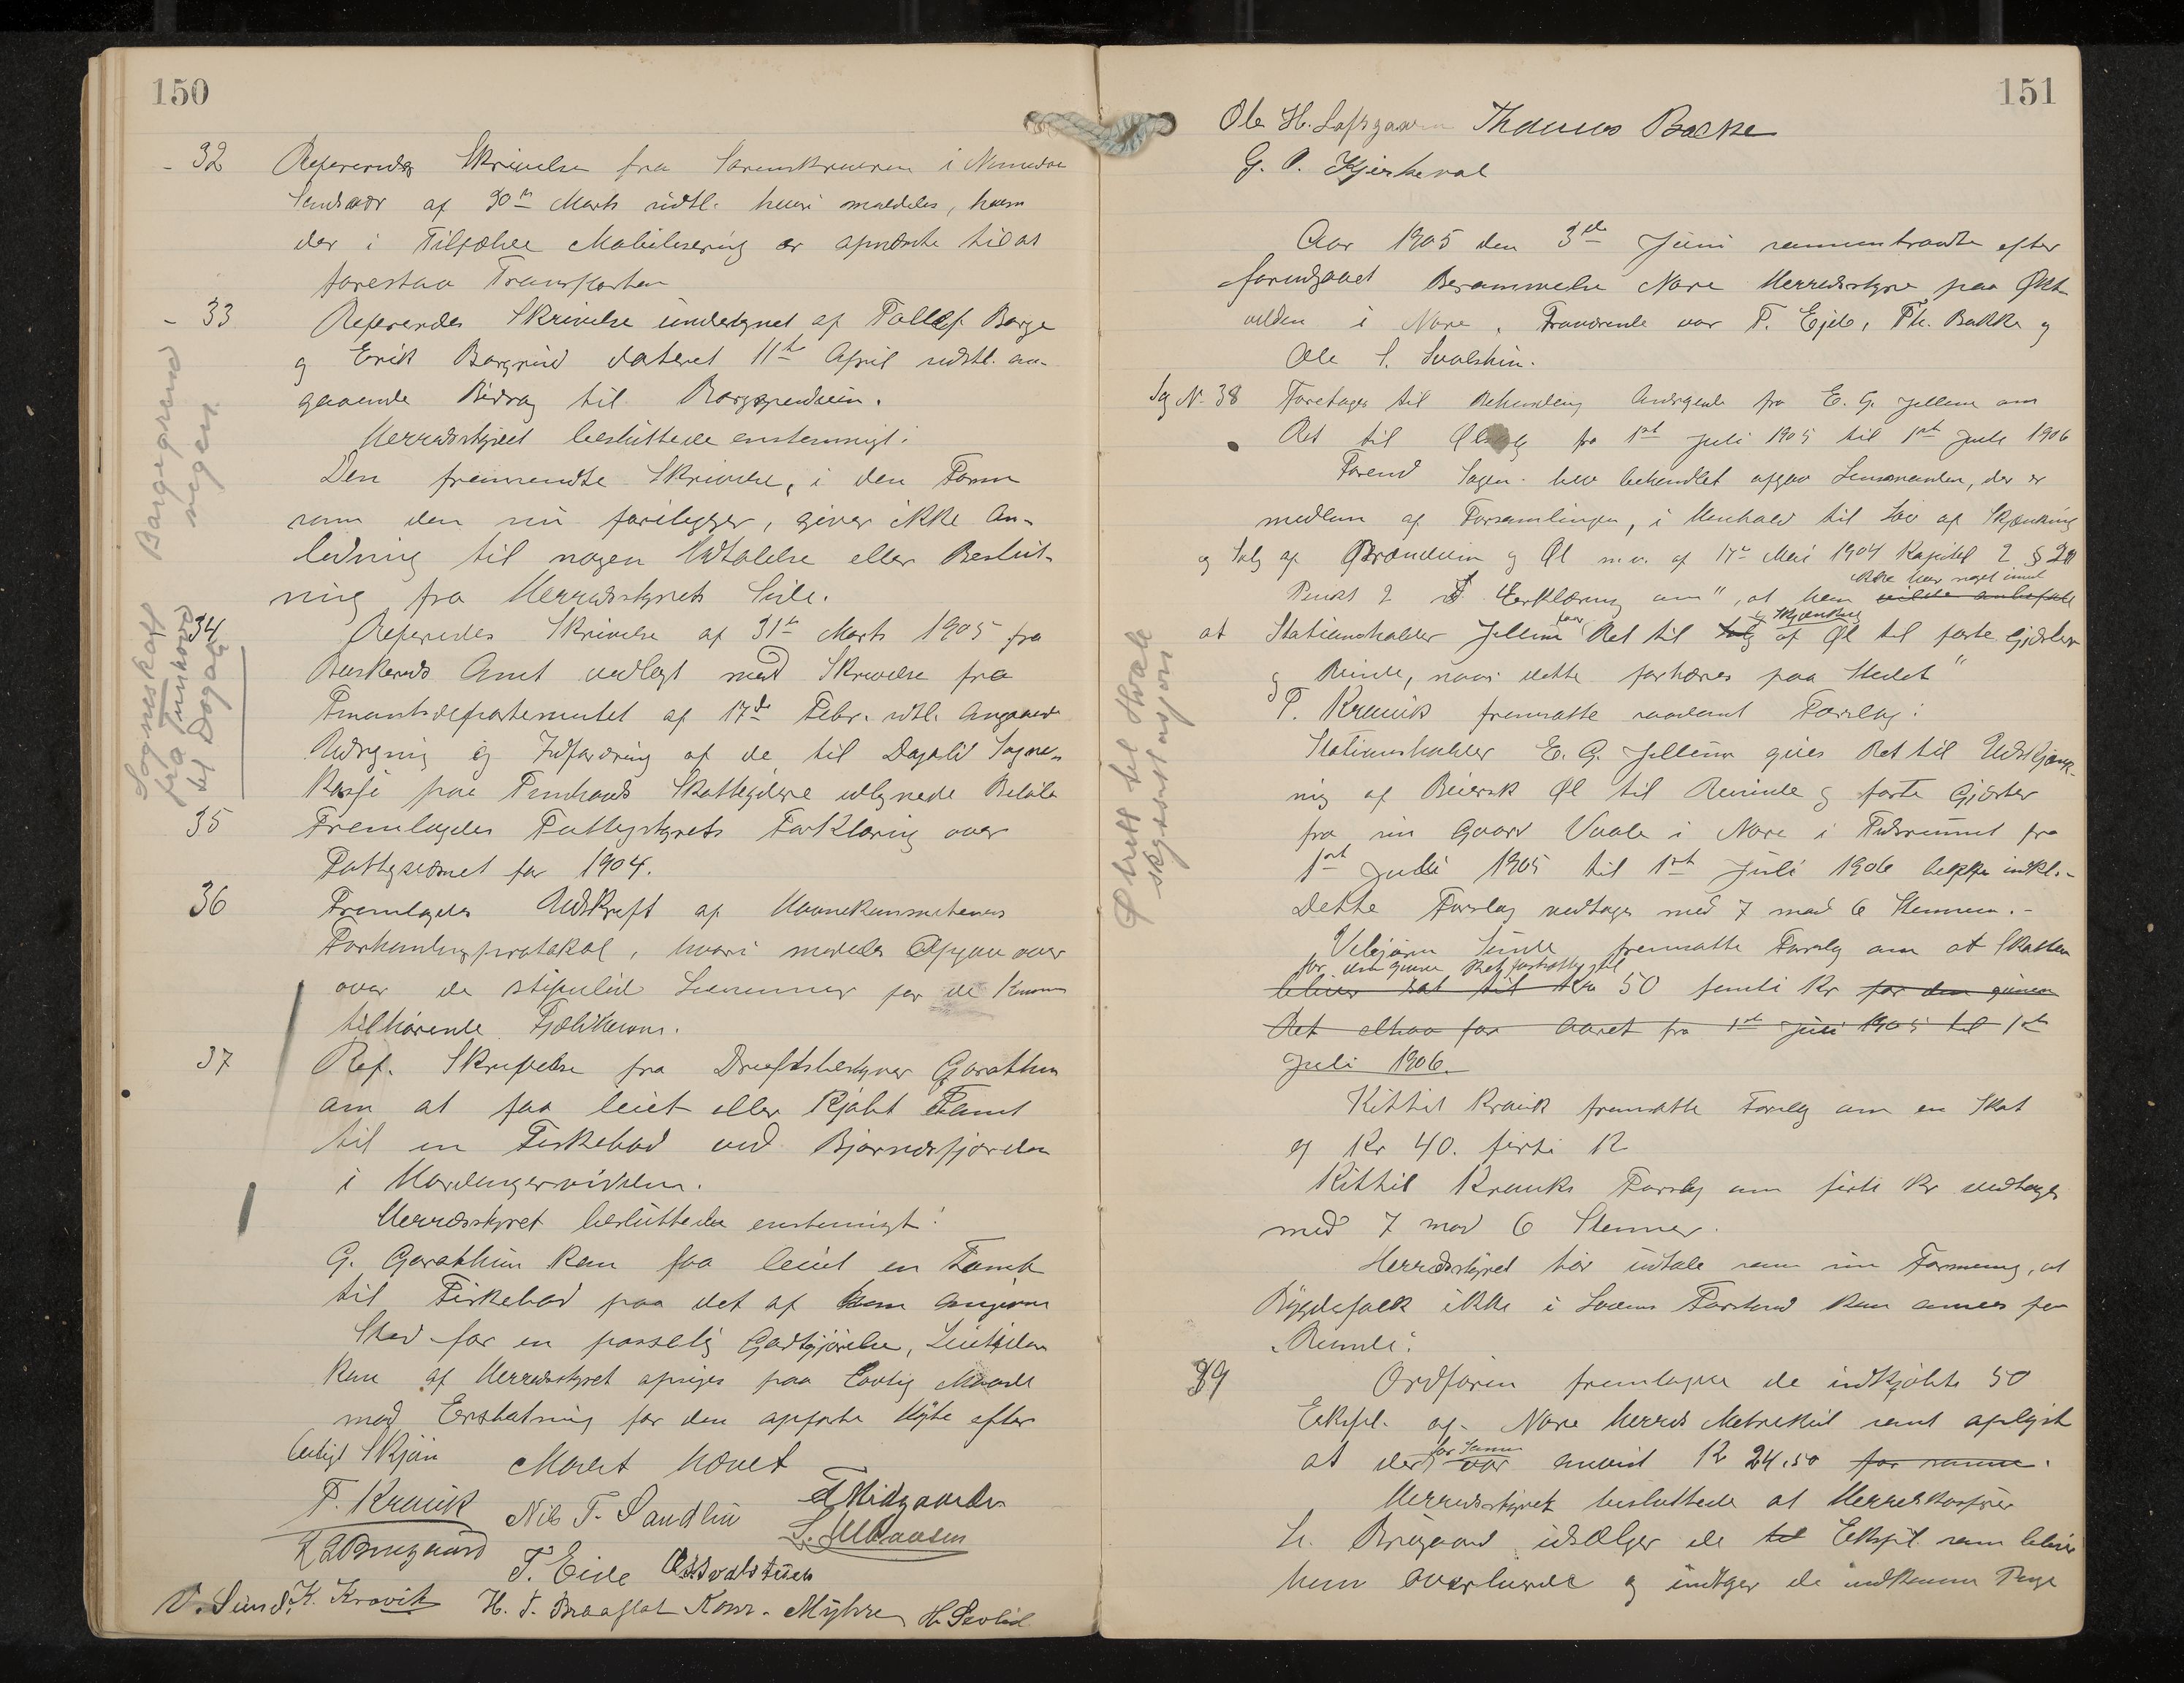 150
- 32 Refereredes Skrivelse fra Sorenskriveren i Numedal
Sandsvær af 30te Marts sidstl. hvori meddeles, hvem
der i Tilfælde Mobilisering er opnævnte til at
forestaa Transporten
- 33 Refererdes Skrivelse undertegnet af Tollef Borge
og Erik Borgrud dateret 11te April sidstl. an-
gaaende Bidrag til
Herredsstyret besluttede enstemmigt:
Den fremsendte Skrivelse, i den Form
som den nu foreligger, giver ikke An-
ledning til nogen Udtalelse eller Beslut-
ning fra Herredsstyrets Side.
34 Referedes Skrivelse af 31te Marts 1905 fra
Buskeruds Amt vedlagt med Skrivelse fra
Finantsdepartementet af 17de Febr. sidstl. Angaaende
Udligning og Indfordring af de til Dagali Sogne-
kasse paa Tunhovds Skatteydere udlignede Beløb
35 Fremlagdes Fattigstyrets Forklaring over
Fattigvæsnet for 1904.
36 Fremlagdes Udskrift af Havnekommissionens
Forhandlingsprotokol, hvori meddeles Opgave over
over de stipulerede for de Kommunen
tilhørende
37 Ref. Skrivelse fra Driftsbestyrer Garathun
om at faa leiet eller kjøbt Tomt
til en Fiskebod ved Bjørnesfjorden
i Hardangervidden.
Herredsstyret besluttede enstemmigt:
G. Garathun kan faa leiet en Tomt
til Fiskebod paa det af ham angivne
Sted for en passelig Godtgjørelse, Leietiden
kan af Herredsstyret opsiges paa lovlig Maade
mod Erstatning for den opførte Hytte efter
lovligt Skjøn Mødet hævet
T. Kravik Nils T. Sandlin T Midgaarden
K L Brugaard T. Eide
V. Sund. K. Kravik H. T. Braaflat Konr. Myhre H. Sevlid
Borgegrend
vegen
Sogneskatt
fra Tunhovd
til Dagali
151
Ole H. Loftsgaarn Thomas Bakke
G. O. Kjerkeval
Aar 1905 den 3de Juni sammentraadte efter
forudgaaet Berammelse Nore Herredsstyre paa Økt-
vedden i Nore. Fraværende var T. Ejde, Th. Bakke og
Ole S.
Sag N. 38 Foretages til Behandling Andragende fra E. G. Jellum om
Ret til Ølsalg fra 1ste Juli 1905 til 1ste Juli 1906
Førend Sagen blev behandlet afgav Lensmanden, der er
medlem af Forsamlingen, i Henhold til Lov af Skjænkning
og Salg af Brændevin og Øl m.v. af 17de Mai 1904 Kapitel 2 § 20
Punkt 2 Erklæring om", at han vilde anbefale
ikke har noget imod
at Stationsholder Jellum faar Ret til Salg af Øl til faste Gjæster
Skjænkning
og Reisende, naar dette fortæres paa Stedet"
T. Kravik fremsatte saadant Forslag:
Stationsholder E. G. Jellum gives Ret til Udskjænk-
ning af Beiersk Øl til Reisende og faste Gjæster
fra sin Gaard Vaale i Nore i Tidsrummet fra
1ste Juli 1905 til 1ste Juli 1906 begge inkl.-
Dette Forslag vedtoges med 7 mod 6 Stemmer.-
Vebjørn Sunde fremsatte Forslag om at Skatten
for den givne Ret fastsættes til
bliver sat til Kr 50 femti Kr for den givne
Ret altsaa for Aaret fra 1ste Juli 1905 til 1ste
Juli 1906.
Kittil Kravik fremsatte Forslag om en Skat
af Kr 40. førti Kr
Kittil Kraviks Forslag om førti Kr vedtoges
med 7 mod 6 Stemmer.
Herredsstyret bør udtale som sin Formening, at
Bygdefolk ikke i Lovens Forstand kan ansees for
"Reisende".
39 Ordføren fremlagde de indkjøbte 50
Eksepl. af Nore Herreds Matrikul samt oplyst
at der for samme var anvist Kr 24.50 for samme.
Herredsstyret besluttede at Herredskasserer
L. Brugaard udsælger de til Ekspl. som bliver
ham overleverede og indtager de indkomne Penge
Ølrett til Hvåle
skysstasjon